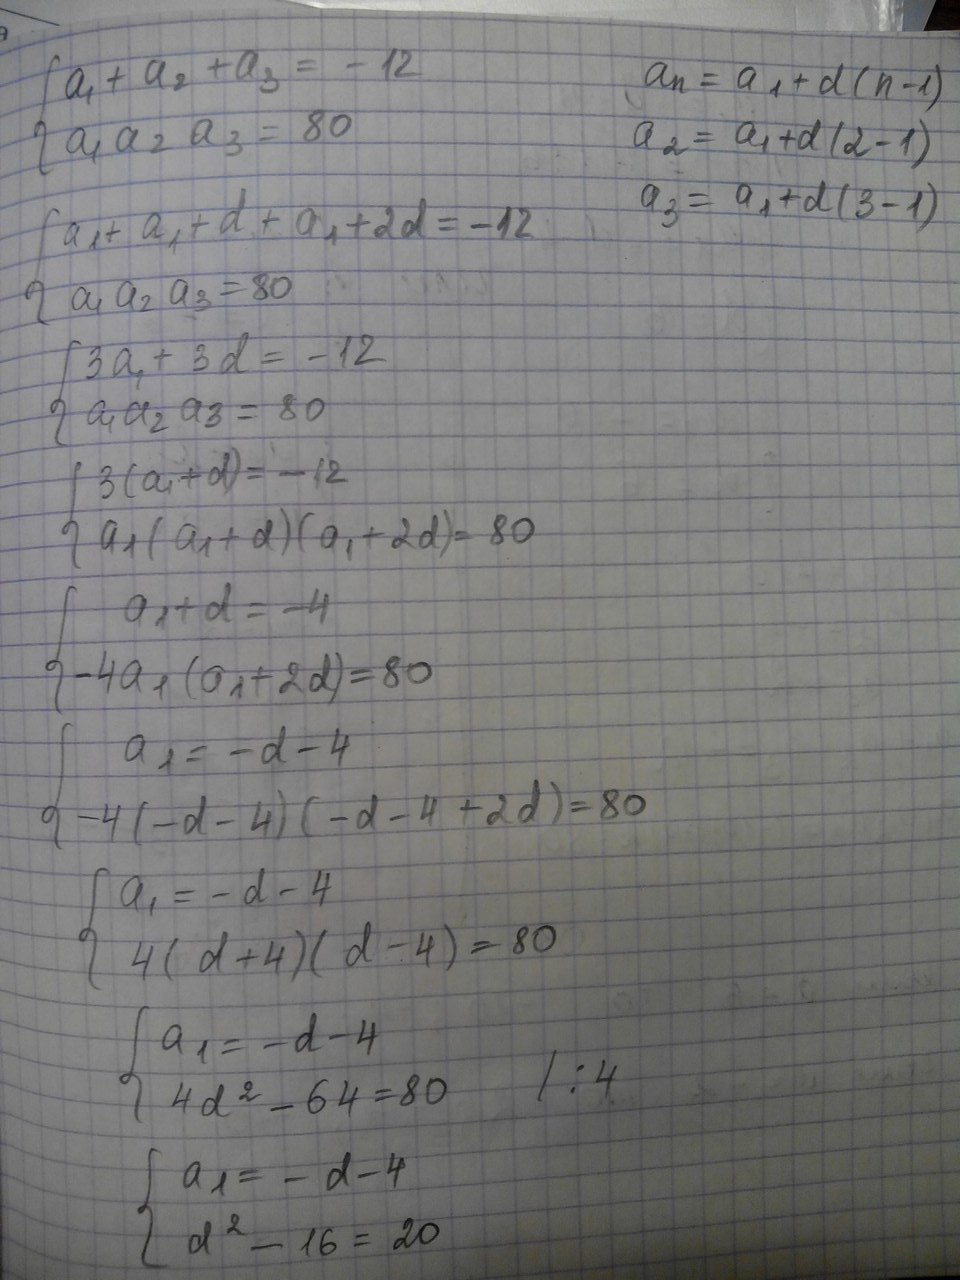 a₁ + a₂ + a₃ = -12
a₁ a₂ a₃ = 80
aₙ = a₁ + d(n-1)
a₂ = a₁ + d(2-1)
a₃ = a₁ + d(3-1)
a₁ + a₁ + d + a₁ + 2d = -12
a₁ a₂ a₃ = 80
3a₁ + 3d = -12
a₁ a₂ a₃ = 80
3(a₁ + d) = -12
a₁(a₁ + d)(a₁ + 2d) = 80
a₁ + d = -4
-4a₁(a₁ + 2d) = 80
a₁ = -d - 4
-4(-d - 4)(-d - 4 + 2d) = 80
a₁ = -d - 4
4(d + 4)(d - 4) = 80
a₁ = -d - 4
4d² - 64 = 80 | : 4
a₁ = -d - 4
d² - 16 = 20